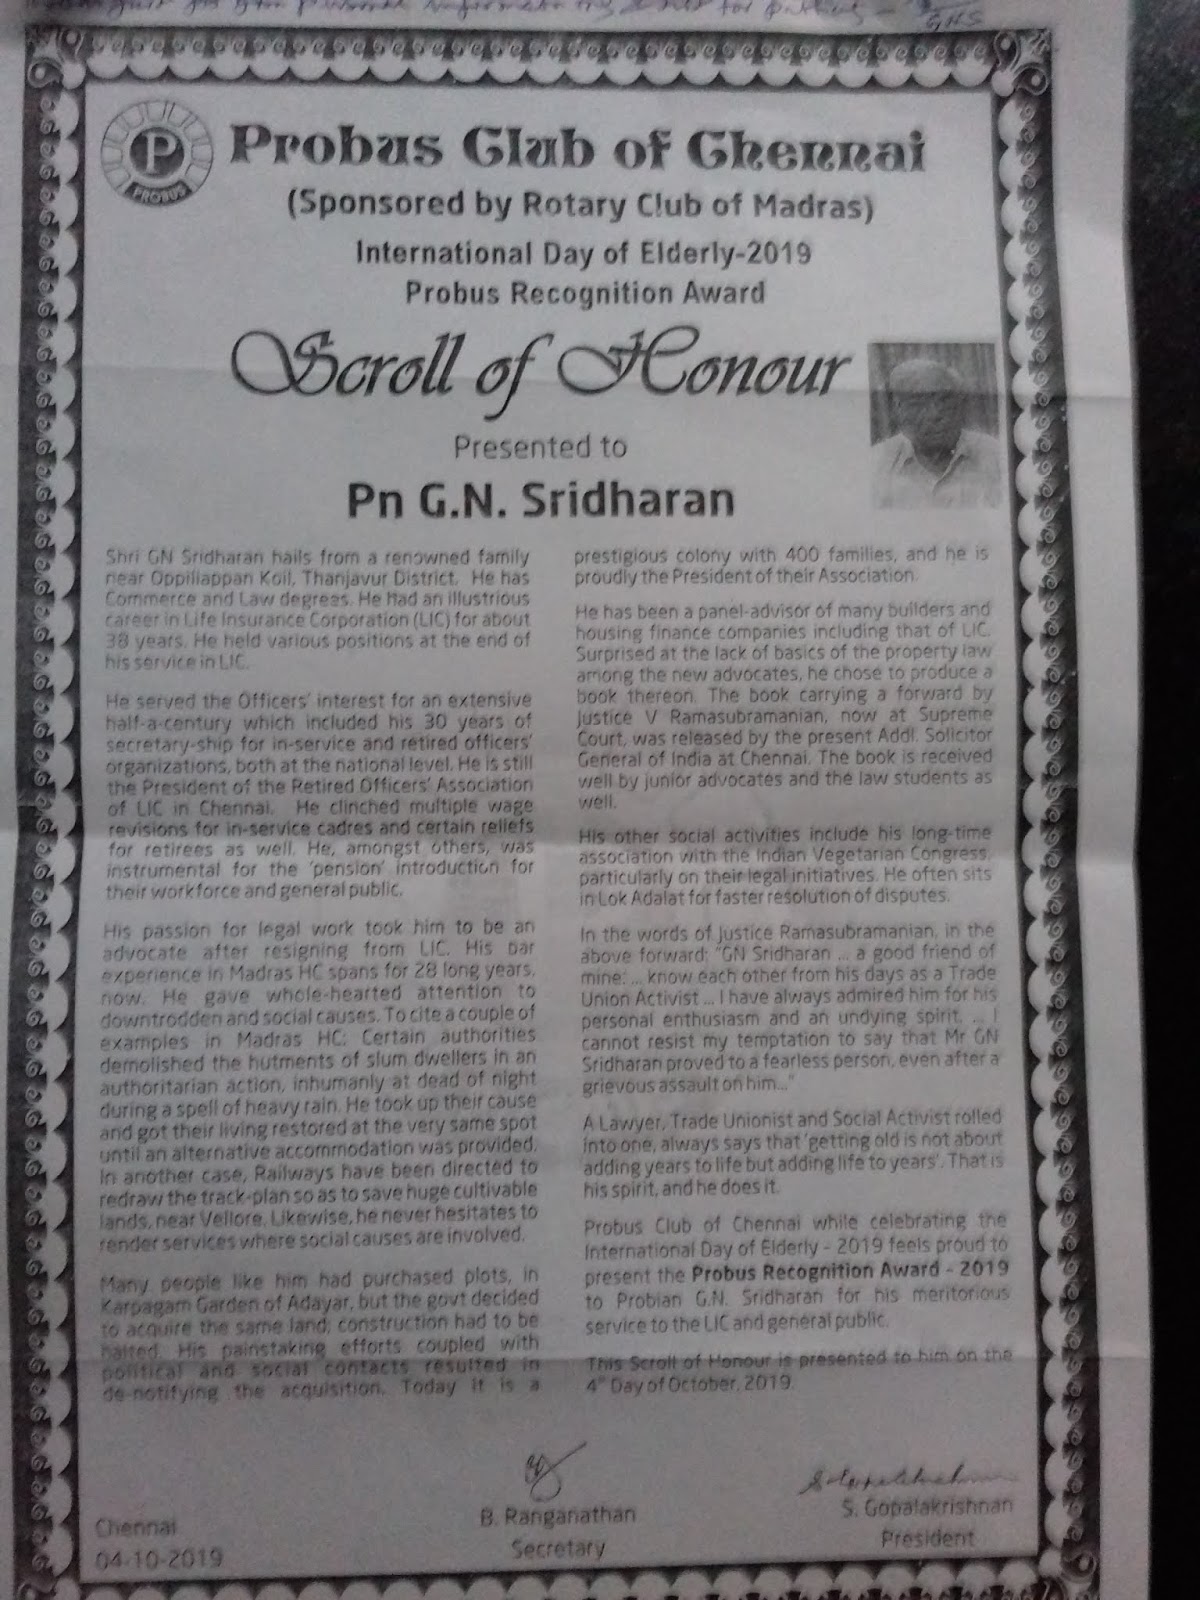 for
GNS
P
PROBUS
Probus Club of Chennai
(Sponsored by Rotary Club of Madras)
International Day of Elderly-2019
Probus Recognition Award
Scroll of Honour
Presented to
Pn G.N. Sridharan
Shri GN Sridharan hails from a renowned family
near Oppiliappan Koil, Thanjavur District. He has
Commerce and Law degrees. He had an illustrious
career in Life Insurance Corporation (LIC) for about
38 years. He held various positions at the end of
his service in LIC.
He served the Officers' interest for an extensive
half-a-century which included his 30 years of
secretary-ship for in-service and retired officers'
organizations, both at the national level. He is still
the President of the Retired Officers' Association
of LIC in Chennai. He clinched multiple wage
revisions for in-service cadres and certain reliefs
for retirees as well. He, amongst others, was
instrumental for the 'pension' introduction for
their workforce and general public.
His passion for legal work took him to be an
advocate after resigning from LIC. His bar
experience in Madras HC spans for 28 long years,
now. He gave whole-hearted attention to
downtrodden and social causes. To cite a couple of
examples in Madras HC: Certain authorities
demolished the hutments of slum dwellers in an
authoritarian action, inhumanly at dead of night
during a spell of heavy rain. He took up their cause
and got their living restored at the very same spot
until an alternative accommodation was provided.
In another case, Railways have been directed to
redraw the track-plan so as to save huge cultivable
lands, near Vellore. Likewise, he never hesitates to
render services where social causes are involved.
Many people like him had purchased plots, in
Karpagam Garden of Adayar, but the govt decided
to acquire the same land; construction had to be
halted. His painstaking efforts coupled with
political and social contacts resulted in
de-notifying the acquisition. Today it is a
prestigious colony with 400 families, and he is
proudly the President of their Association.
He has been a panel-advisor of many builders and
housing finance companies including that of LIC.
Surprised at the lack of basics of the property law
among the new advocates, he chose to produce a
book thereon. The book carrying a forward by
Justice V Ramasubramanian, now at Supreme
Court, was released by the present Addl. Solicitor
General of India at Chennai. The book is received
well by junior advocates and the law students as
well.
His other social activities include his long-time
association with the Indian Vegetarian Congress,
particularly on their legal initiatives. He often sits
in Lok Adalat for faster resolution of disputes.
In the words of Justice Ramasubramanian, in the
above forward: "GN Sridharan ... a good friend of
mine: ... know each other from his days as a Trade
Union Activist ... I have always admired him for his
personal enthusiasm and an undying spirit. ... I
cannot resist my temptation to say that Mr GN
Sridharan proved to a fearless person, even after a
grievous assault on him..."
A Lawyer, Trade Unionist and Social Activist rolled
into one, always says that 'getting old is not about
adding years to life but adding life to years'. That is
his spirit, and he does it.
Probus Club of Chennai while celebrating the
International Day of Elderly - 2019 feels proud to
present the Probus Recognition Award - 2019
to Probian G.N. Sridharan for his meritorious
service to the LIC and general public.
This Scroll of Honour is presented to him on the
4th Day of October, 2019.
Chennai
04-10-2019
B. Ranganathan
Secretary
S. Gopalakrishnan
S. Gopalakrishnan
President